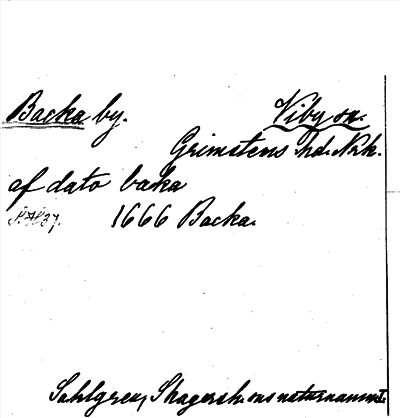 Backa by. Viby sn.
Grimstens hd. Nrk.
af dato baka
1666 Backa.
Sahlgren, Skagersh. ons naturnamn I.